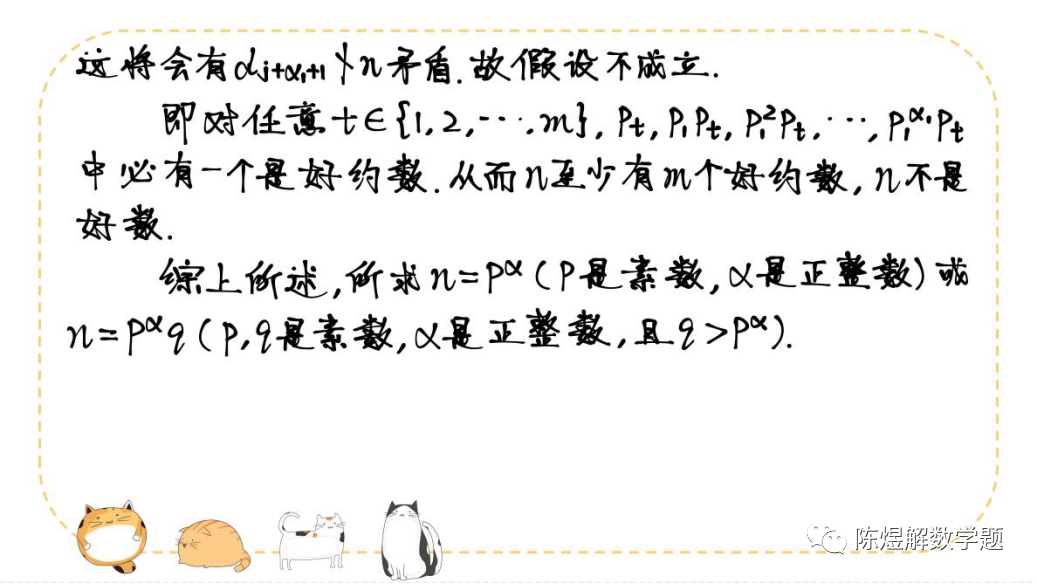 这将会有d_{j+α₁+1}∤n矛盾.故假设不成立.
即对任意t∈{1,2,⋯,m},P_t,P₁P_t,P₁²P_t,⋯,P₁^{α₁}P_t
中必有一个是好约数.从而n至少有m个好约数,n不是
好数.
综上所述,所求n=P^α(P是素数,α是正整数)或
n=P^αq(P,q是素数,α是正整数,且q>P^α).
陈煜解数学题